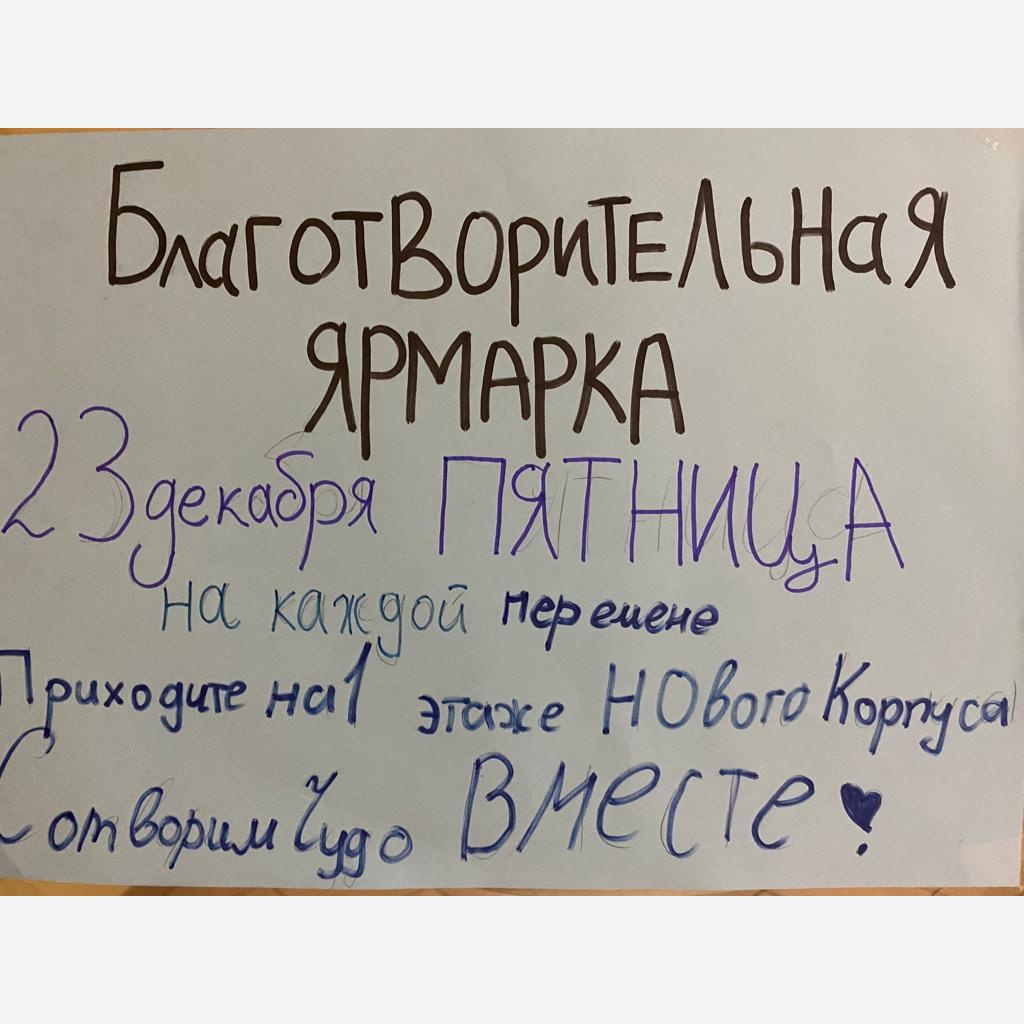 Благотворительная
ЯРМАРКА
23 декабря ПЯТНИЦА
на каждой перемене
Приходите на 1 этаже Нового Корпуса
Сотворим Чудо Вместе!